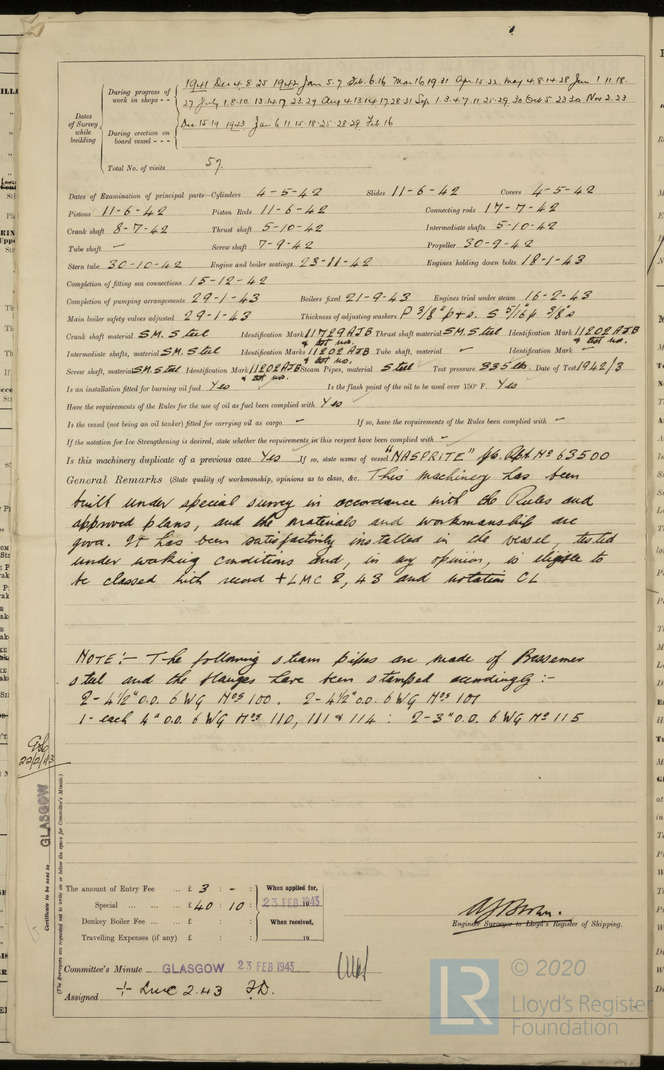 During progress of work in shops - - 1941 Dec 4. 8. 25 1942 Jan 5. 7 Feb. 6. 16 Mar 16 19. 31 Apr. 15. 22. May 4. 8. 14. 28 Jun 1. 11. 18.
27 July 1. 8. 10. 13. 14. 17. 23. 29 Aug 4. 13. 14. 17. 28. 31 Sep. 1. 3. 4. 7. 11. 25. 29. 30 Oct 5. 23. 30 Nov 2. 23
Dates of Survey while building
During erection on board vessel - - - Dec 15. 19 1943 Jan 6 11 15. 18. 25. 28. 29 Feb 16
Total No. of visits 57.
Dates of Examination of principal parts—Cylinders 4-5-42 Slides 11-6-42 Covers 4-5-42
Pistons 11-6-42 Piston Rods 11-6-42 Connecting rods 17-7-42
Crank shaft 8-7-42 Thrust shaft 5-10-42 Intermediate shafts 5-10-42
Tube shaft - Screw shaft 7-9-42 Propeller 30-9-42
Stern tube 30-10-42 Engine and boiler seatings 23-11-42 Engines holding down bolts 18-1-43
Completion of fitting sea connections 15-12-42
Completion of pumping arrangements 29-1-43 Boilers fixed 21-9-43 Engines tried under steam 16-2-43
Main boiler safety valves adjusted 29-1-43 Thickness of adjusting washers P 3/8" p+s. S 5/16" p 3/8" s
Crank shaft material S.M. Steel Identification Mark 11729 AJB & tst no. Thrust shaft material S.M. Steel Identification Mark 11202 AJB & tst no.
Intermediate shafts, material S.M. Steel Identification Marks 11202 AJB & tst no. Tube shaft, material - Identification Mark -
Screw shaft, material S.M. Steel Identification Mark 11202 AJB & tst no. Steam Pipes, material Steel Test pressure 335 lb. Date of Test 1942/3
Is an installation fitted for burning oil fuel Yes Is the flash point of the oil to be used over 150° F. Yes
Have the requirements of the Rules for the use of oil as fuel been complied with Yes
Is the vessel (not being an oil tanker) fitted for carrying oil as cargo - If so, have the requirements of the Rules been complied with -
If the notation for Ice Strengthening is desired, state whether the requirements in this respect have been complied with -
Is this machinery duplicate of a previous case Yes If so, state name of vessel "NASPRITE" Gls. Rpt No 63500
General Remarks (State quality of workmanship, opinions as to class, &c. This machinery has been
built under special survey in accordance with the Rules and
approved plans, and the materials and workmanship are
good. It has been satisfactorily installed in the vessel, tested
under working conditions and, in my opinion, is eligible to
be classed with record + LMC 2, 43 and notation CL
NOTE:- The following steam pipes are made of Bessemer
steel and the flanges have been stamped accordingly:-
2- 4½" O.D. 6 WG Nos 100. 2- 4½" O.D. 6 WG Nos 107
1- each 4" O.D. 6 WG Nos 110, 111 & 114 : 2- 3" O.D. 6 WG No 115
22/2/43
GLASGOW
Certificate to be sent to
(The Surveyors are requested not to write on or below the space for Committee's Minute.)
The amount of Entry Fee ... £ 3 : - : When applied for,
Special ... ... £ 40 : 10 : 23 FEB 1943
Donkey Boiler Fee ... ... £ : : When received,
Travelling Expenses (if any) £ : : 19
Engineer Surveyor to Lloyd's Register of Shipping.
Committee's Minute GLASGOW 23 FEB 1943
Assigned + LMC 2.43 F.D.
LR
© 2020
Lloyd's Register
Foundation